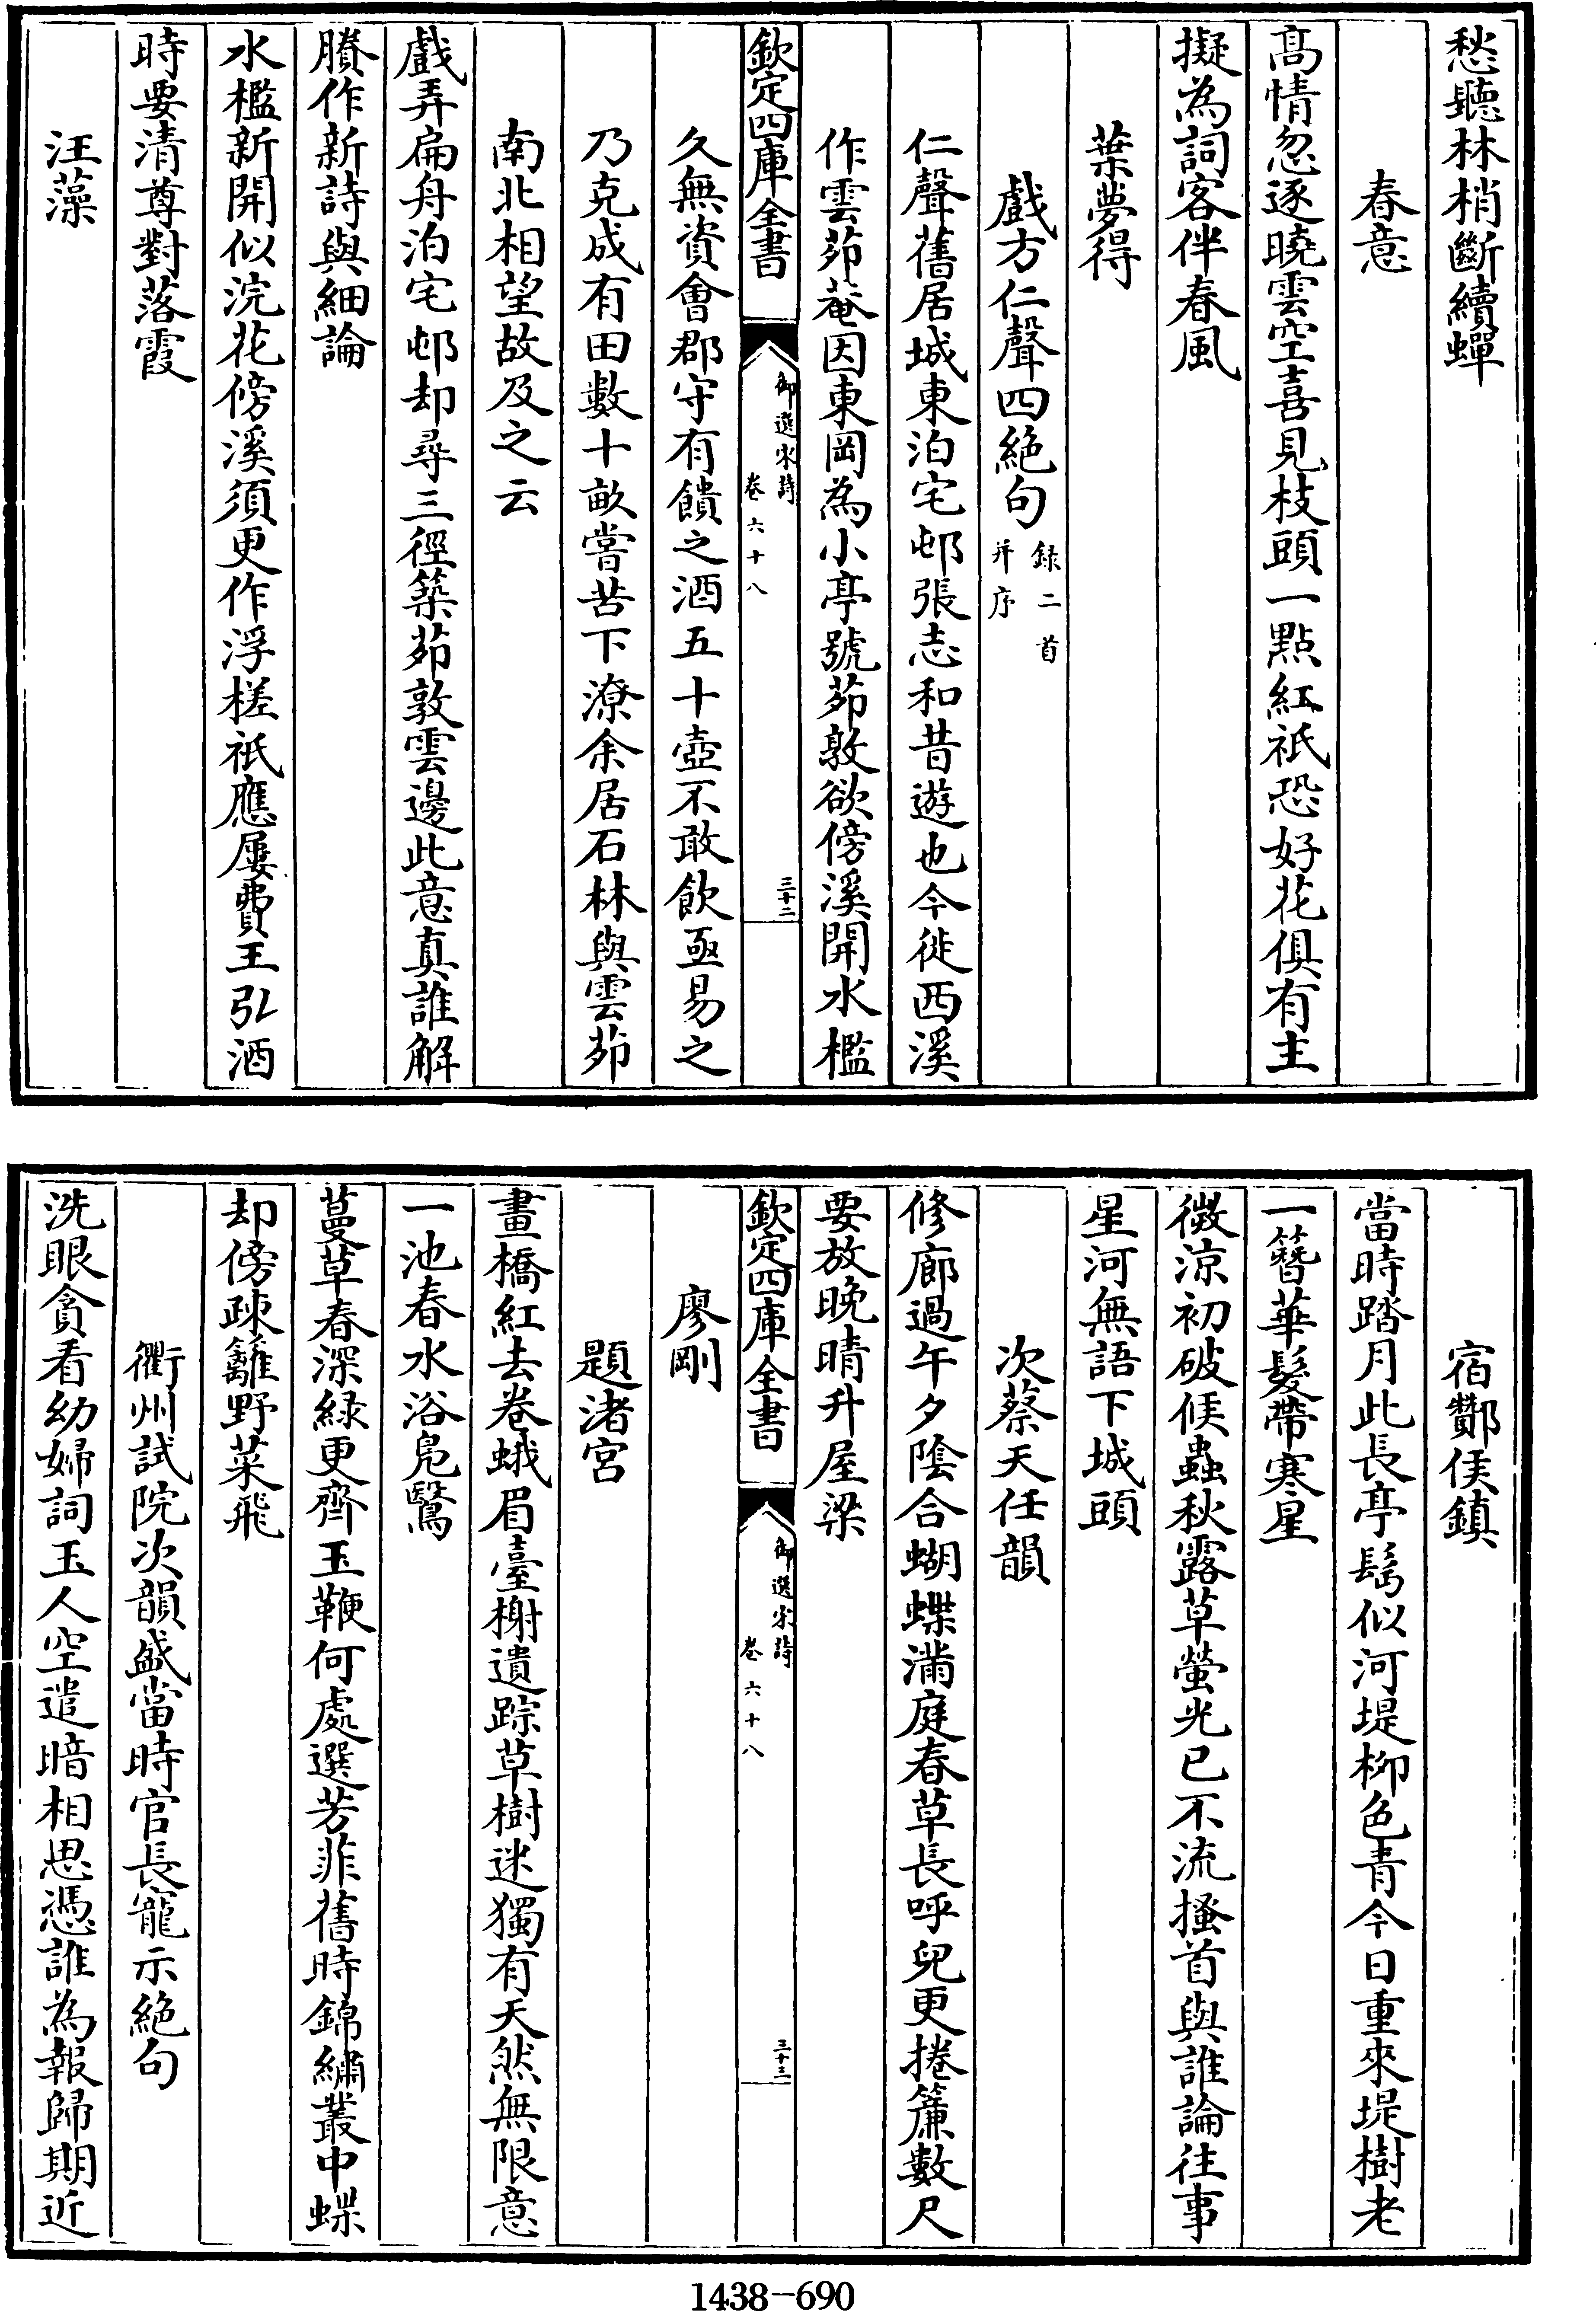 愁聽林梢斷續蟬
春意
髙情忽逐曉雲空喜見枝頭一點紅祇恐好花俱有主
擬為詞客伴春風
葉夢得
戲方仁聲四絶句
録二首
并序
仁聲舊居城東泊宅邨張志和昔遊也今徙西溪
作雲茆菴因東岡為小亭號茆敦欲傍溪開水檻
欽定四庫全書
御選宋詩
卷六十八
三十二
久無資會郡守有饋之酒五十壺不敢飲亟易之
乃克成有田數十畝嘗苦下潦余居石林與雲茆
南北相望故及之云
戲弄扁舟泊宅邨却尋三徑築茆敦雲邊此意真誰解
賸作新詩與細論
水檻新開似浣花傍溪須更作浮槎祇應屢費王弘酒
時要清尊對落霞
汪藻
宿酇侯鎮
當時踏月此長亭髩似河堤柳色青今日重來堤樹老
一簪華髮帶寒星
微涼初破候蟲秋露草螢光已不流搔首與誰論往事
星河無語下城頭
次蔡天任韻
修廊過午夕陰合蝴蝶滿庭春草長呼兒更捲簾數尺
要放晚晴升屋梁
欽定四庫全書
御選宋詩
卷六十八
三十三
廖剛
題渚宮
畫橋紅去卷蛾眉臺榭遺踪草樹迷獨有天然無限意
一池春水浴鳬鷖
蔓草春深緑更齊玉鞭何處選芳菲舊時錦繡叢中蝶
却傍疎籬野菜飛
衢州試院次韻盛當時官長寵示絶句
洗眼貪看幼婦詞玉人空遣暗相思憑誰為報歸期近
1438-690